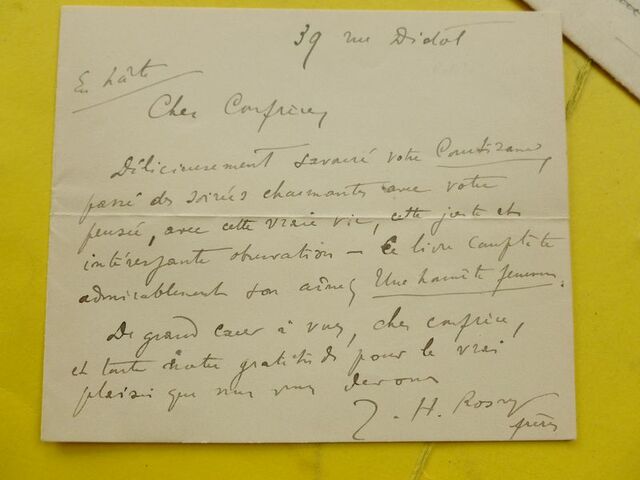 39 rue Didot
En hâte
Cher Confrère,
Délicieusement savouré votre Courtisane,
passé des soirées charmantes avec votre
pensée, avec cette vraie vie, cette juste et
intéressante observation — Ce livre complète
admirablement son aîné, Une honnête femme.
De grand cœur à vous, cher confrère,
et toute notre gratitude pour le vrai
plaisir que nous vous devons
J. H. Rosny
frères